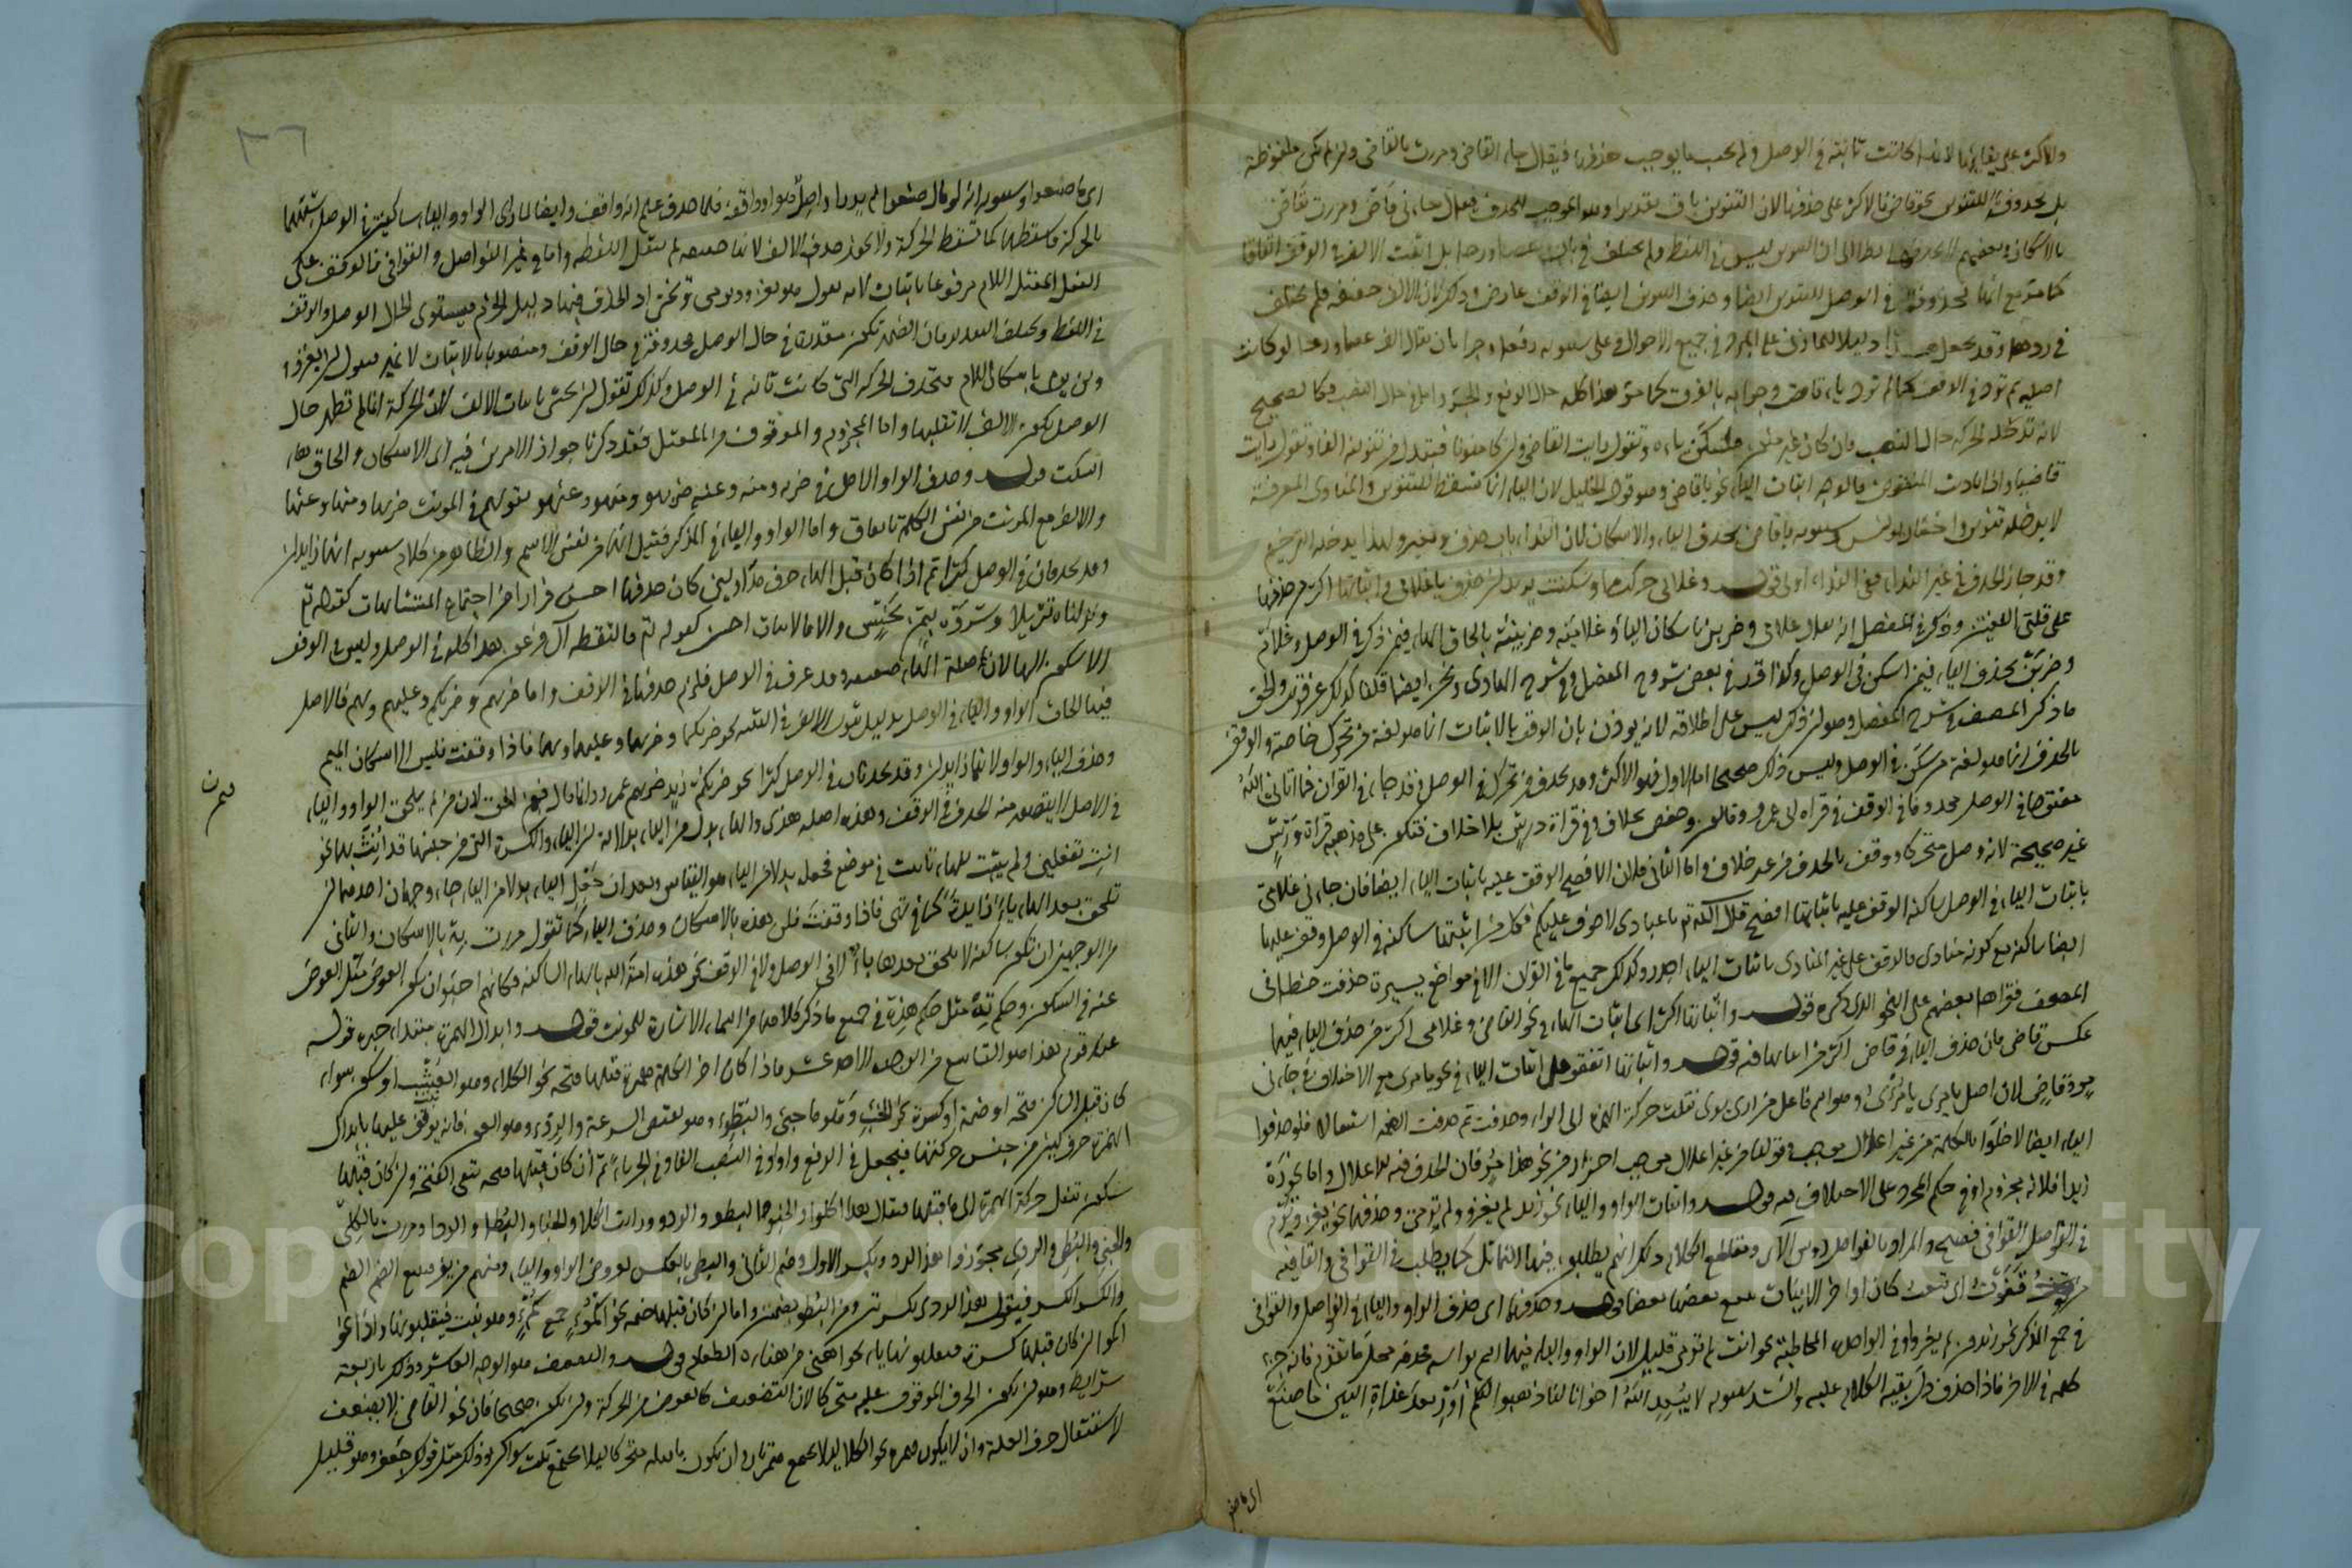 والاكثر على بقائها لانها كانت ثابتة في الوصل ولم يجب ما يوجب حذفها فيقال جاء القاضي ومررت بالقاضي وان لم تكن ملفوظة
بل محذوفة للتنوين نحو قاض فالاكثر على حذفها لان التنوين باق تقديرا وهو الموجب للحذف فيقال جاءني قاض ومررت بقاض
بالاسكان وبعضهم نظرا الى ان التنوين ليس في اللفظ ولم يختلف في باب عصا ورحا بل اتفقت الالف في الوقف اتفاقا
كما مع انها محذوفة في الوصل للتنوين ايضا وحذف التنوين ايضا في الوقف عارض وذلك لان الالف خفيفة فلم يختلف
في ردها وقد يجعل دليلا للمازني على المبرد في جميع الاحوال وعلى سيبويه رفعا وجرا بان يقال الف عصا ورحا لو كانت
اصلية لم ترد في الوقف كما لم ترد ياء قاض وجوابه بالفرق كما مر هذا كله حال الرفع والجر واما في حال النصب فكالصحيح
لانه تدخله الحركة حال النصب فان كان غير منون فتسكن ياءه وتقول رايت القاضي وان كان منونا فيبدل من تنوينه الفا وتقول رايت
قاضيا واذا ناديت المنقوص فالوجه اثبات الياء نحو يا قاضي وهو قول الخليل لان الياء انما تسقط للتنوين والمنادى المعرفة
لا يدخله تنوين واختار يونس وسيبويه يا قاض بحذف الياء والاسكان لان النداء باب حذف وتغيير ولهذا يدخله الترخيم
وقد جاز الحذف في غير النداء ففي النداء اولى قوله وغلامي حركت او سكنت يريد ان حذف يا غلامي واثباتها اكثر من حذفها
على قلتي اللغتين وذكر في المفصل انه يقال غلامي وضربني باسكان الياء وغلاميه وضربنيه بالحاق الهاء فيمن حرك في الوصل وغلام
وضربن بحذف الياء فيمن اسكن في الوصل وكذا قرر في بعض شروح المفصل وفي شرح الهادي ونحن ايضا قلنا كذلك
ما ذكر المصنف في شرح المفصل وهو ان ذكر ليس على اطلاقه لانه يوذن بان الوقف بالاثبات انما هو لغة من تحرك خاصة والوقف
بالحذف انما هو لغة من سكن في الوصل وليس ذلك صحيحا اما الاول فهو الاكثر وقد يحذف من تحرك في الوصل فقد جاء في القران فما اتاني الله
مفتوحا في الوصل محذوفا في الوقف في قراة ابي عمرو وقالون وحفص بخلاف وفي قراة ورش بلا خلاف فتكون على مذهبه قراة ورش
غير صحيحة لانه وصل متحركا ووقف بالحذف من غير خلاف واما الثاني فلان الافصح الوقف عليه باثبات الياء ايضا فان جاءني غلامي
باثبات الياء في الوصل ساكنة الوقف عليه باثباتها افصح قال الله تع يا عبادي لا خوف عليكم فكل من اثبتها ساكنة في الوصل وقف عليها
ايضا ساكنة مع كونه منادى فالوقف على غير المنادى باثبات الياء اجدر وكذلك جميع ما في القران الا في مواضع يسيرة حذفت خطا في
المصحف فقراها بعضهم على النحو الذي ذكره قوله واثباتها اكثر اي اثبات الياء في نحو القاضي وغلامي اكثر من حذف الياء فيهما
عكس قاض فان حذف الياء في قاض اكثر من اثباتها فيه قوله واثباتها اتفقوا على اثبات الياء في نحو يا مري مع الاختلاف في جاءني
مر وقاض لان اصل يا مري يا مرئي اذ هو اسم فاعل من ارى يري نقلت حركة الهمزة الى الراء وحذفت ثم حذفت الضمة استثقالا فلو حذفوا
الياء ايضا لاخلوا بالكلمة من غير اعلال موجب وقولنا من غير اعلال موجب احتراز من نحو هذا مر فان الحذف فيه للاعلال واما نحو رَهْ
زيدا فلانه مجزوم او في حكم المجزوم على الاختلاف فيه قوله واثبات الواو والياء نحو زيد لم يغزو ولم يرمي وحذفهما نحو يغز ويرم
في الفواصل والقوافي فصيح والمراد بالفواصل رؤس الآي ومقاطع الكلام وذلك انهم يطلبون فيها التماثل كما يطلب في القوافي والقافية
من قفوت اي تبعت كان اواخر الابيات تتبع بعضها بعضا قوله وحذفهما اي حذف الواو والياء في الفواصل والقوافي
في جمع المذكر نحو زيدون لم يغزوا وفي الواحدة المخاطبة نحو انت لم ترمي قليل لان الواو والياء فيهما اسم براسه بخلاف ما تقدم فانه جزء
كلمة في الاخر فاذا حذف دل بقية الكلام عليه وانشد سيبويه لا يبعد الله اخوانا لنا ذهبوا لم ادر بعد غداة البين ما صنع
اي ما صنعوا
٣٦
اي ما صنعوا وسيبويه لو قال صنعوا لم يدر اواصل هو او واقف فلما حذف علم انه واقف وايضا لما راى الواو والياء ساكنين في الوصل شبههما
بالحركة فاسقطهما كما تسقط الحركة ولا يجوز حذف الالف لانها خفيفة لم تثقل اللفظة واما في غير الفواصل والقوافي فالوقف على
الفعل المعتل اللام مرفوعا باثبات لامه نقول هو يغزو ويرمي ويخشى اذ الحذف فيها دليل الجزم فيستوي لفظ حال الوصل والوقف
في اللفظ ويختلف التقدير فان الضمة تكون مقدرة في حال الوصل محذوفة في حال الوقف ومنصوبا بالاثبات لا غير نقول لن يغزو
ولن يرمي باسكان اللام فتحذف الحركة التي كانت ثابتة في الوصل وكذلك تقول لن يخشى باثبات الالف لان الحركة انما لم تظهر حال
الوصل لكون الالف لا تقبلها واما المجزوم والموقوف من المعتل فقد ذكرنا جواز الامرين فيه اي الاسكان والحاق هاء
السكت قوله وحذف الواو الاصل في ضربه ومنه وعنه ضربهو ومنهو وعنهو بقولهم في المونث ضربها ومنها وعنها
والالف مع المونث من نفس الكلمة باتفاق واما الواو والياء في المذكر فقيل انهما من نفس الاسم والظاهر من كلام سيبويه انهما زائدان
وقد يحذفان في الوصل كثيرا ثم اذا كان قبل الهاء حرف مد او لين كان حذفهما احسن فرارا من اجتماع المتشابهات كقوله تع
ونزلناه تنزيلا وشروه بثمن بخس والا فالاثبات احسن كقوله تع فالتقطه آل فرعون هذا كله في الوصل وليس في الوقف
الا سكون الهاء لانه صلة الهاء ضعيفة وقد عرف في الوصل فلزم حذفها في الوقف واما ضربهم وضربكم وعليهم وبهم فالاصل
فيها الحاق الواو والياء في الوصل بدليل ثبوت الالف في التثنية نحو ضربكما وضربهما وعليهما وبهما فاذا وقفت فليس الا اسكان الميم
وحذف الياء والواو لانهما زائدان وقد يحذفان في الوصل كثيرا نحو ضربكم زيد ضربهم عمرو وانما قال فيمن الحق لان من لم يلحق الواو والياء
في الاصل لا يتصور منه الحذف في الوقف وهذه اصله هذي والهاء بدل من الياء بدلالة ان الياء والكسرة التي من جنسها قد انث بهما نحو
انت تفعلين ولم يثبت للهاء تانيث في موضع فجعل بدلا من الياء هو القياس وبعد ان جعل الهاء بدلا من الياء جاء وجهان احدهما ان
تلحق بعد الهاء ياء زائدة كما في بهي فاذا وقفت فلن هذه بالاسكان وحذف الياء كما تقول مررت به بالاسكان والثاني
من الوجهين ان تكون ساكنة لا تلحق بعدها ياء لا في الوصل ولا في الوقف نحو هذه امة الله بالهاء الساكنة فكانهم اختاروا ان يكون العوض مثل المعوض
عنه في السكون وحكم ته مثل حكم هذه في جميع ما ذكر كلاهما من اسماء الاشارة للمونث قوله وابدال الهمزة مبتدا خبره قوله
عند قوم هذا هو التاسع من الوجوه الاحد عشر فاذا كان اخر الكلمة همزة قبلها فتحة نحو الكلاء وهو العشب او سكون سواء
كان قبل الساكن فتحة او ضمة او كسرة نحو الخبء وهو ما خبئ والبطء وهو نقيض السرعة والردء وهو العون فانه يوقف عليها بابدال
الهمزة حرف لين من جنس حركتها فيجعل في الرفع واوا وفي النصب الفا وفي الجر ياء ثم ان كان قبلها فتحة تبقى الفتحة وان كان قبلها
سكون تنقل حركة الهمزة الى ما قبلها فيقال هذا الكلو والخبو والبطو والردو ورايت الكلا والخبا والبطا والردا ومررت بالكلي
والخبي والبطي والردي فجوزوا هذا الردو بكسر الاول وضم الثاني والبطي بالعكس لعروض الواو والياء ومنهم من يفر فيتبع الضم الضم
والكسر الكسر فيقول هذا الردي بكسرتين ومن البطو بضمتين واما ان كان قبلها ضمة نحو اكمؤ جمع كمء وهو نبت فيقلبونها واوا نحو
اكمو وان كان قبلها كسرة فيقلبونها ياء نحو اهني من هناه الطعام قوله والتضعيف هو الوجه العاشر وذلك باربعة
شرايط وهو ان يكون الحرف الموقوف عليه متحركا لان التضعيف كالعوض من الحركة وان يكون صحيحا فان نحو القاضي لا يضعف
لاستثقال حرف العلة وان لا يكون همزة نحو الكلاء لئلا يجتمع همزتان وان يكون ما قبله متحركا لئلا يجتمع ثلث سواكن وذلك مثل قولك جعفر وهو قليل
Copyright © King Saud University